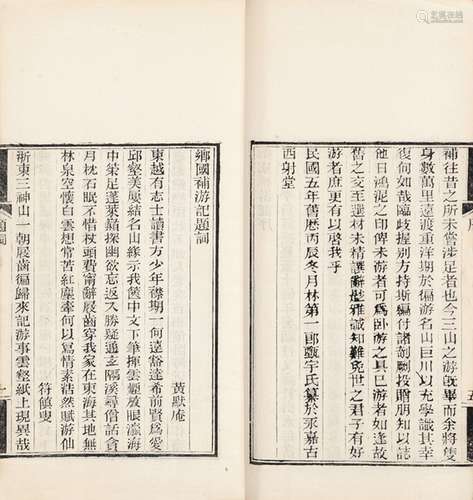 補往昔之所未嘗涉足者也今三山之游旣畢而余將隻
身數萬里遠渡重洋期於徧游名山巨川以充學識其幸
復何如哉臨歧握別方持斯編付諸剞劂投贈朋好以誌
他日鴻泥之印俾未游者可爲臥游之具已游者如逢故
舊之交至選材未精譔辭尠雅誠知難免世之君子有好
游者庶更有以啓我乎
民國五年舊厯丙辰冬月林第一郎甑宇氏纂於永嘉古
西射堂
五
鄉國補游記題詞
黃默庵
東越有志士讀書方少年襟期一何遠豁達希前賢爲愛
邱壑美屨結名山緣示我篋中文下筆揮雲煙放眼瀛海
中榮足蓬萊顛探幽欲忘返入勝疑通玄隔溪尋僧話貪
月枕石眠不惜杖頭費甯辭屐齒穿我家在東海其地無
林泉空懷白雲想常苦紅塵牽何以爲情素浩然賦游仙
符愼叟
浙東三神山一朝屐齒徧歸來記游事雲壑紙上現異哉